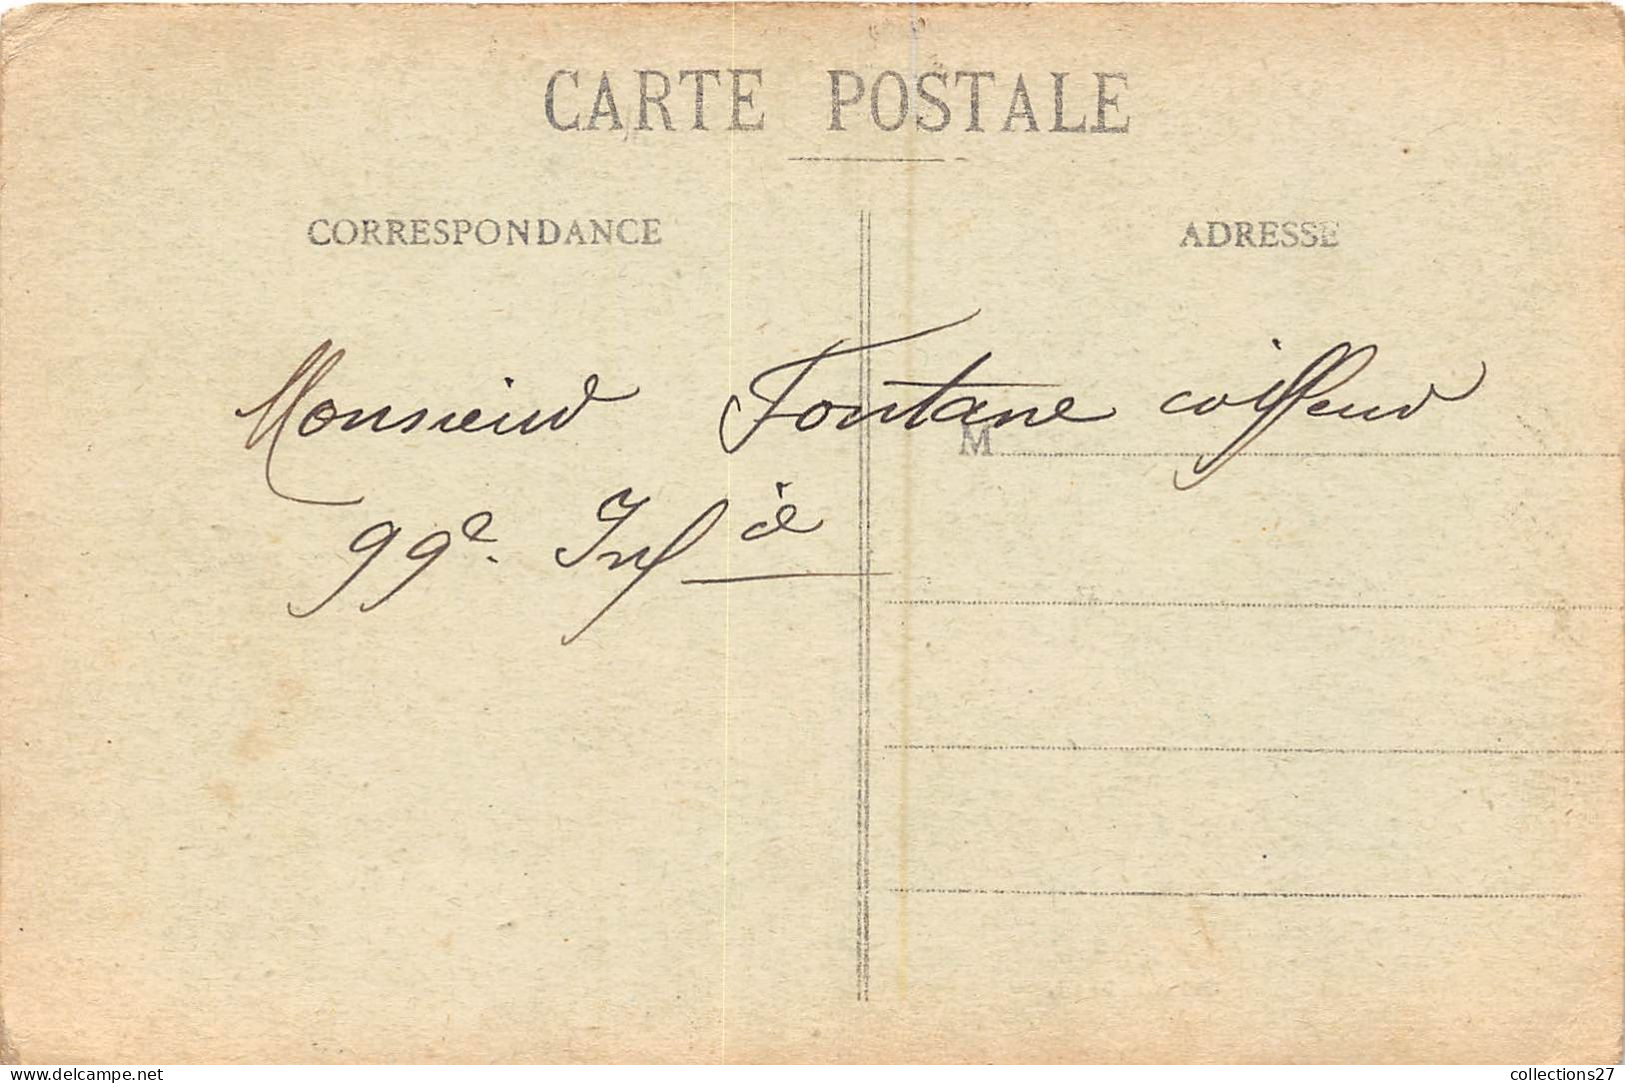 CARTE POSTALE
CORRESPONDANCE ADRESSE
Monsieur Fontane coiffeur
M
99e. Infie
www.delcampe.net collections27